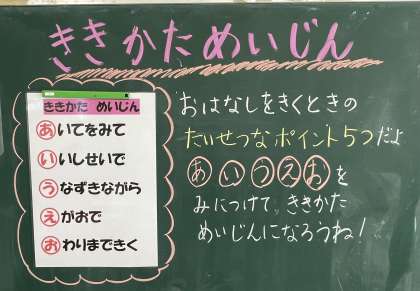 ききかためいじん
ききかた めいじん
あいてをみて
いいしせいで
うなずきながら
えがおで
おわりまできく
おはなしをきくときの
たいせつなポイント5つだよ
あいうえおを
みにつけて、ききかた
めいじんになろうね!